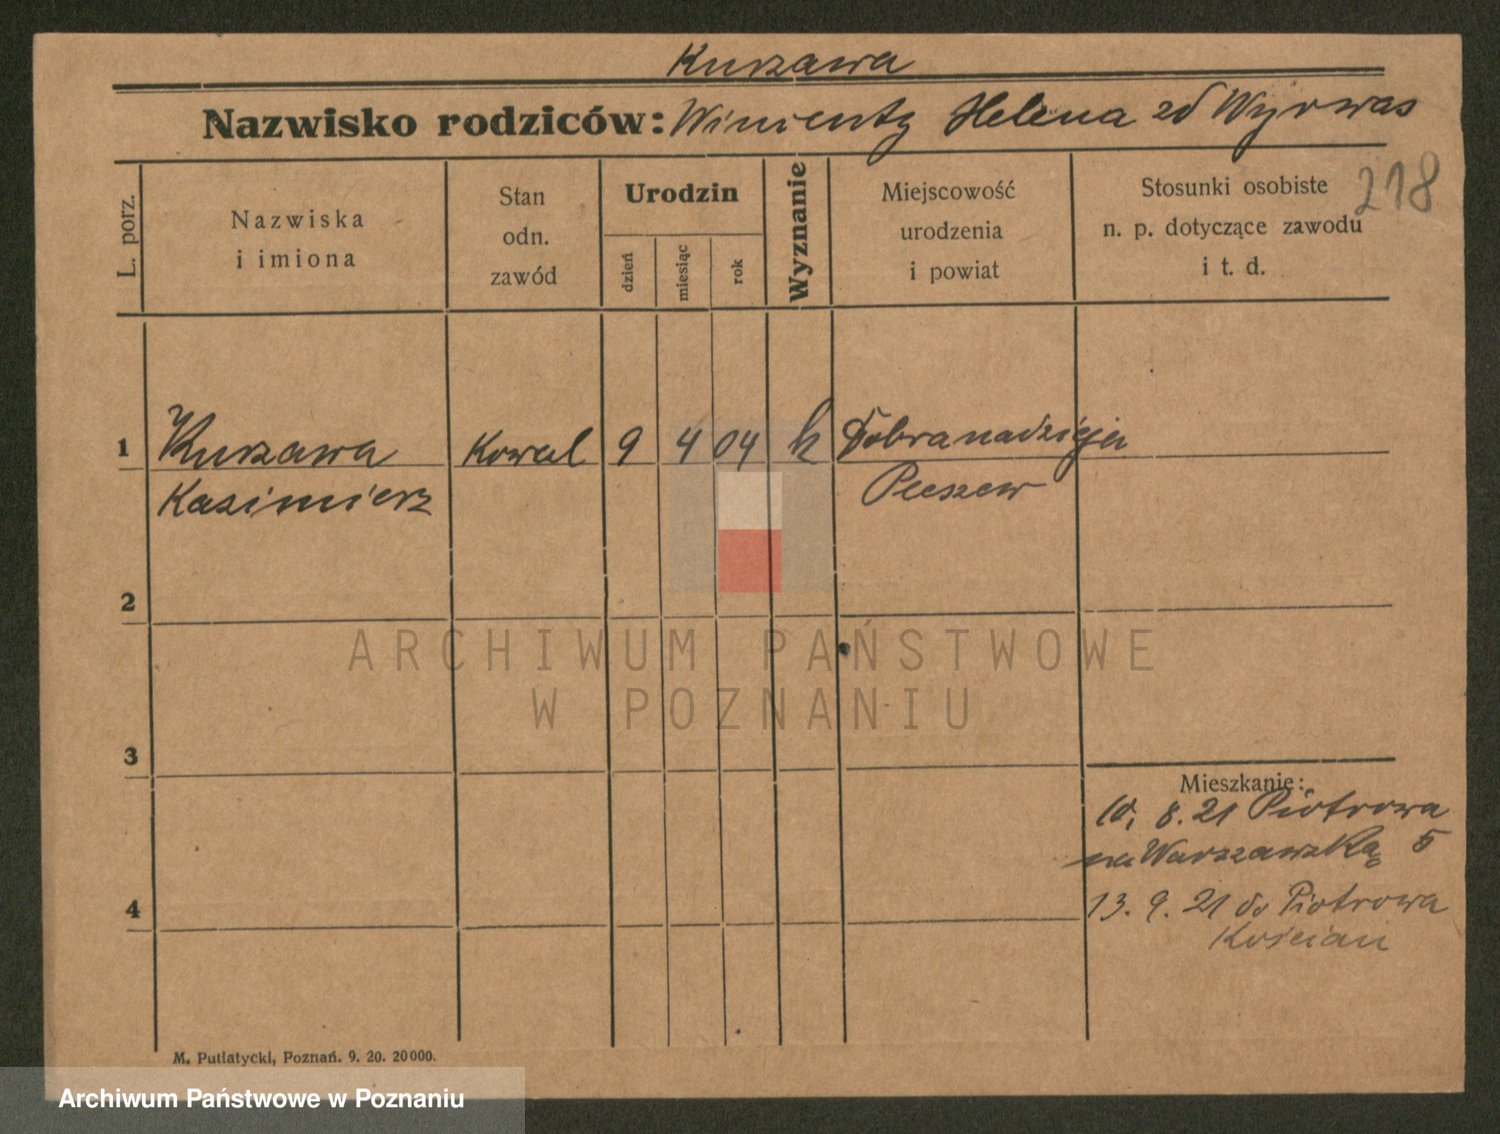 Kurzawa
Nazwisko rodziców: Winienty Helena zd Wyrwas
218
L. porz.
Nazwiska
i imiona
Stan
odn.
zawód
Urodzin
dzień
miesiąc
rok
Wyznanie
Miejscowość
urodzenia
i powiat
Stosunki osobiste
n. p. dotyczące zawodu
i t. d.
1 Kurzawa Kowal 9 4 04 k Dobranadzieja
Kazimierz Pleszew
2
3
4
Mieszkanie:
10. 8. 21 Piotrowa
na Warszawską 5
13. 9. 21 do Piotrowa
Kościan
M. Putiatycki, Poznań. 9. 20. 20000.
ARCHIWUM PAŃSTWOWE
W POZNANIU
Archiwum Państwowe w Poznaniu